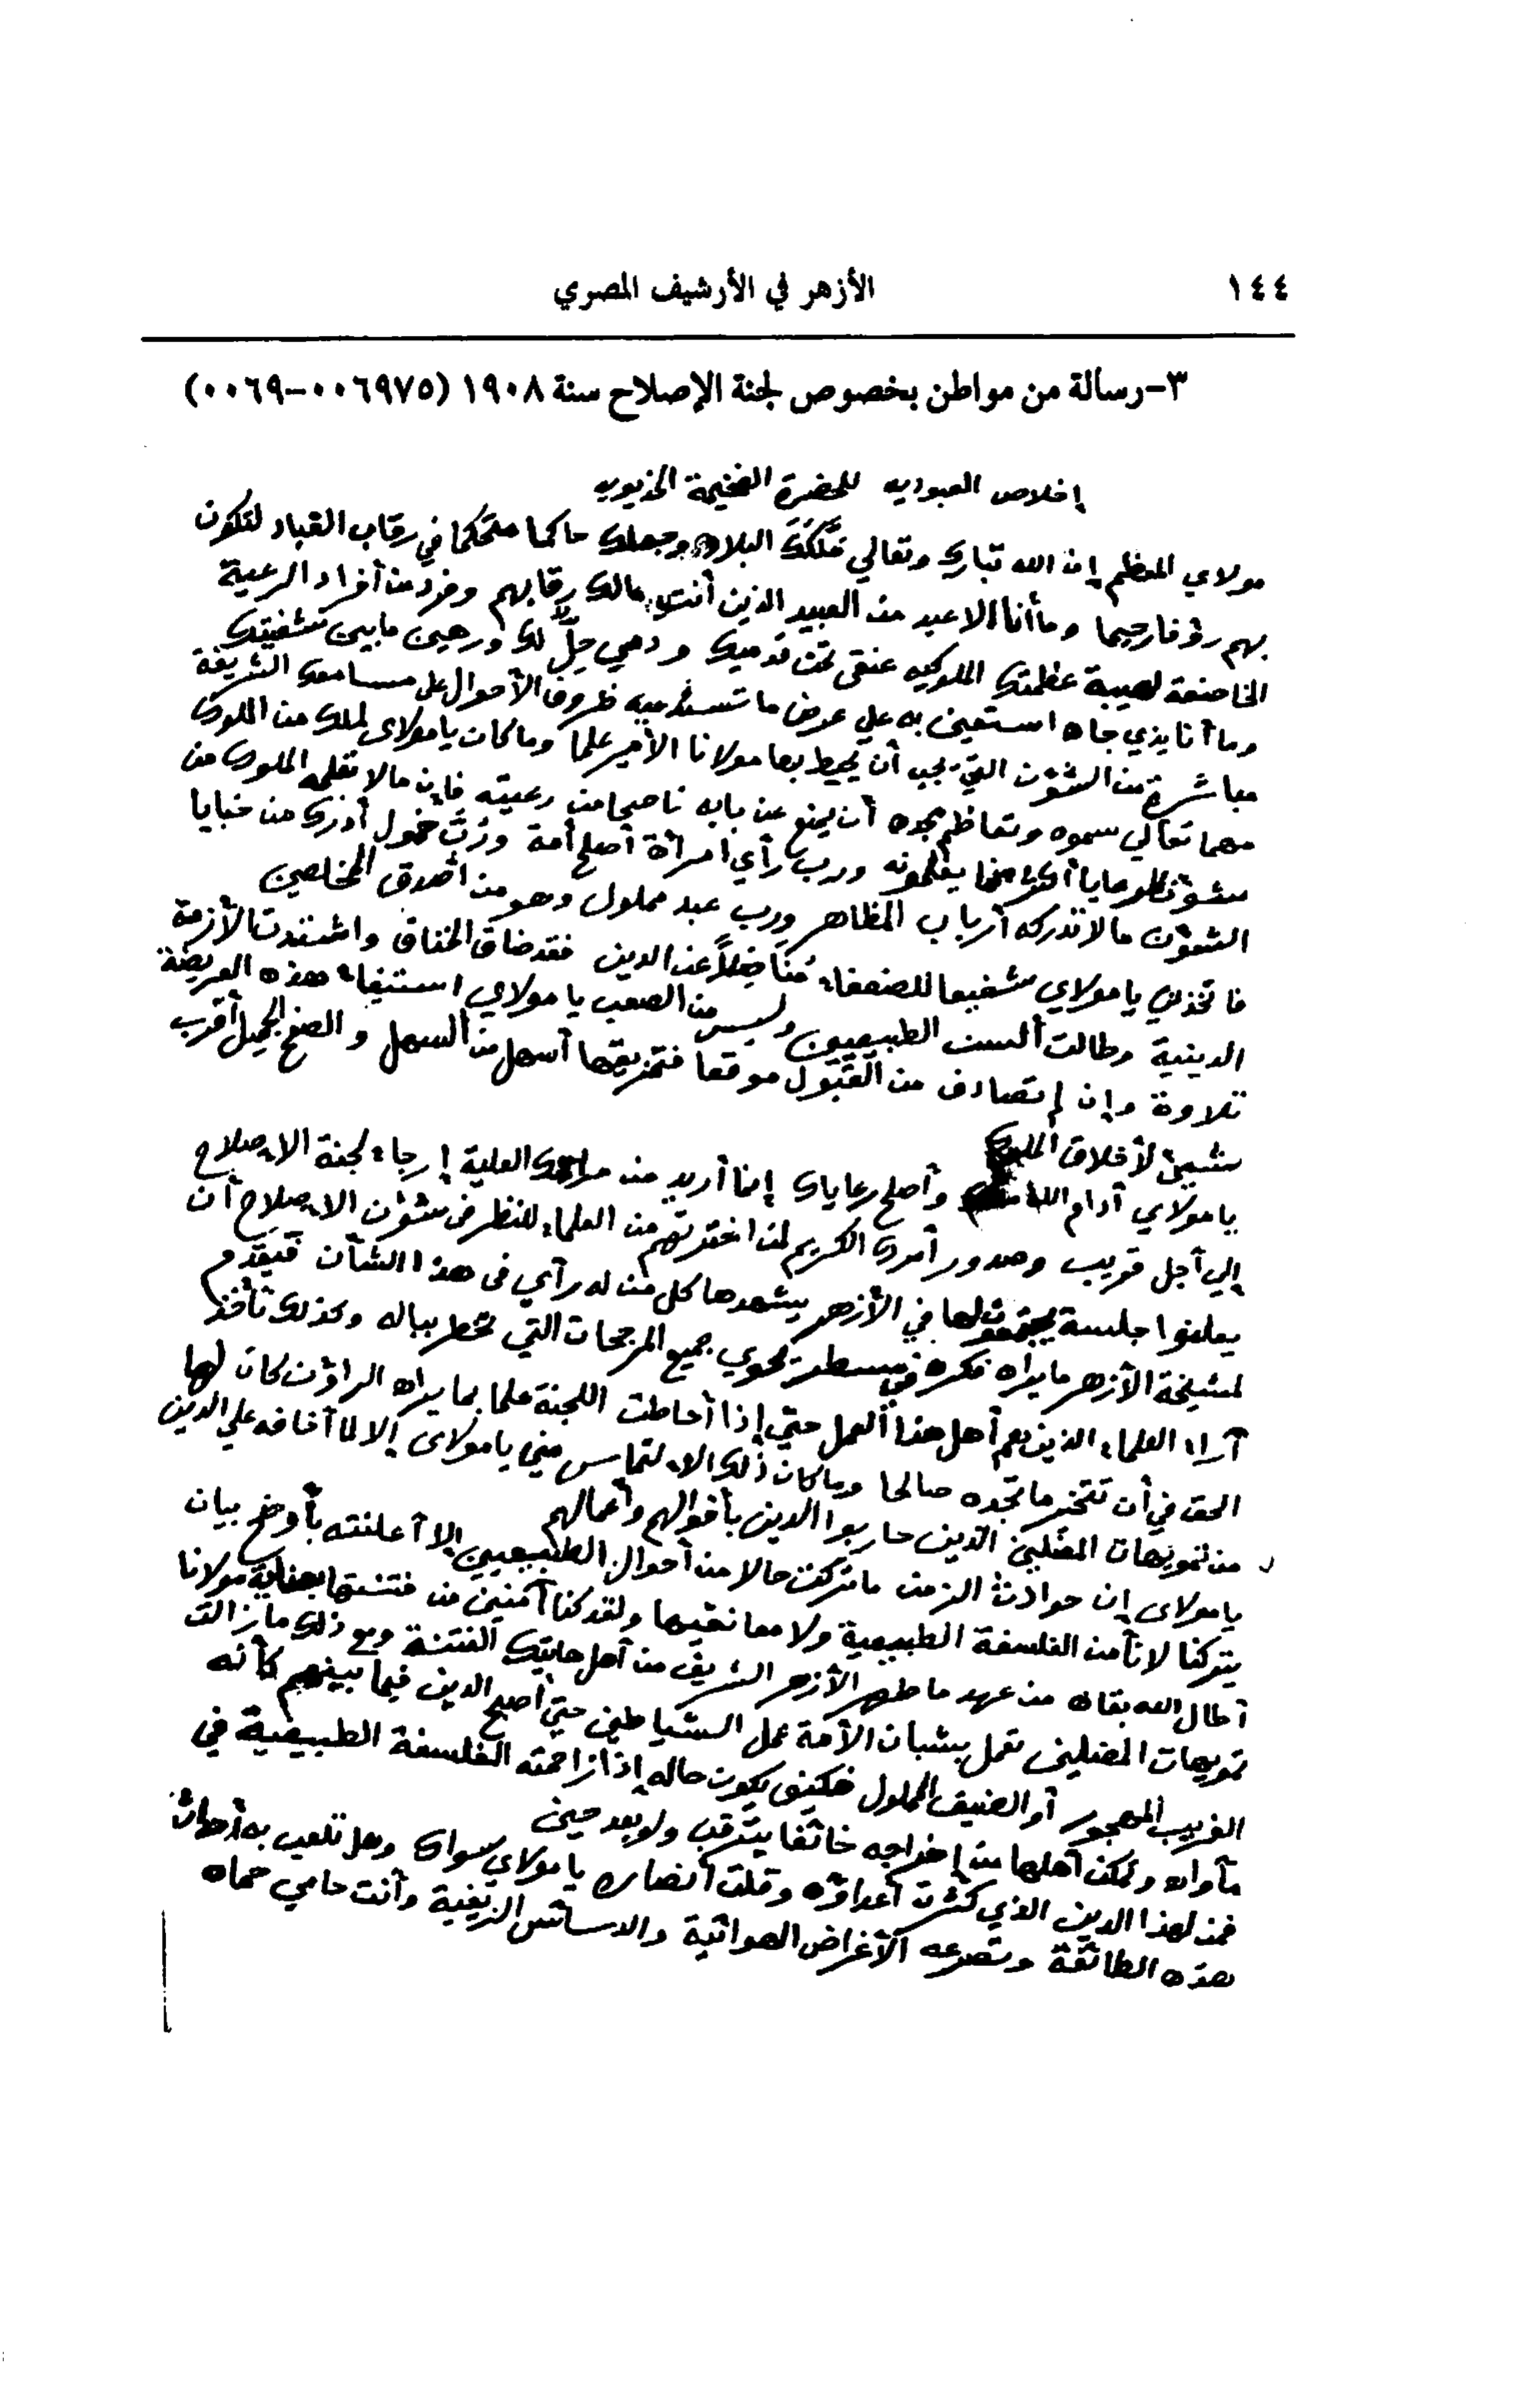 ١٤٤
الأزهر في الأرشيف المصري
٣-رسالة من مواطن بخصوص لجنة الإصلاح سنة ١٩٠٨ (٠٠٦٩-٠٠٦٩٧٥)
إخلاص العبوديه للحضرة الفخيمة الخديويه
مولاي المعظم إن الله تبارك وتعالي مَلَّكَكَ البلاد وجعلك حاكما متحكما في رقاب العباد لتكون
بهم رؤفا رحيما وما أنا الا عبد من العبيد الذين أنت مالك رقابهم وفرد من أفراد الرعية
الخاضعة لهيبة عظمتك الملوكيه عنقى تحت قدميك ودمي حِلٌّ لك ورهين ما بين شفتيك
وما أنا بذي جاه استعين به علي عرض ما تستدعيه ظروف الأحوال على مسامعك الشريفة
مباشرة من الشؤن التي يجب أن يحيط بها مولانا الأمير علما وما كان يا مولاى لملك من الملوك
مهما تعالي سموه وتعاظم مجده أن يمنع عن بابه ناصحا من رعيته فإن ما لا تعلمه الملوك من
شؤن الرعايا أكثر مما يعلمونه ورب رأي امرأة أصلح أمة ورُبَّ خمول أدرك من خبايا
الشؤن ما لا تدركه أرباب المظاهر ورب عبد مملول وهو من أصدق المخلصين
فاتخذني يا مولاي شفيعا للضعفاء مُناضِلاً عن الدين فقد ضاق الخناق واشتدت الأزمة
الدينية وطالت ألسن الطبيعيون وليس من الصعب يا مولاي استيفاء هذه العريضة
تلاوة وإن لم تصادف من القبول موقعا فتمزيقها أسهل من السهل والصفح الجميل أقرب
شيئ لأخلاق الملوك
يا مولاي أدام الله وأصلح رعاياك إنما أريد من مراحمك العلية إرجاء لجنة الإصلاح
إلي أجل قريب وصدور أمرك الكريم لمن اخترتهم من العلماء للنظر فى شؤن الاصلاح أن
يعلنوا جلسة يجتمعون لها في الأزهر يشهدها كل من له رأي فى هذا الشأن فيقدم
لمشيخة الأزهر ما يراه فكره في مسطرة تحوي جميع المرجحات التي تخطر بباله وكذلك تأخذ
آراء العلماء الذين هم أهل هذا العمل حتي إذا أحاطت اللجنة علما بما يراه الراؤن كان لها
الحق في أن تتخير ما تجده صالحا وما كان ذلك الالتماس مني يا مولاى إلا لما أخافه علي الدين
من تمويهات المضلين الذين حاربوا الدين بأقوالهم وأعمالهم
يا مولاى إن حوادث الزمن ما تركت حالا من أحوال الطبيعيين إلا أعلنته بأوضح بيان
يتركنا لا نأمن الفلسفة الطبيعية ولا معانقيها ولقد كنا آمنين من فتنتها بعناية مولانا
أطال الله بقاه من عهد ما طهر الأزهر الشريف من أهل هاتيك الفتنة ومع ذلك ما زالت
تمويهات المضلين تعمل بشبان الأمة عمل الشياطين حتي أصبح الدين فيما بينهم كأنه
الغريب المهجور أو الضيف المملول فكيف يكون حاله إذا زاحمته الفلسفة الطبيعية في
مأواه وتمكن أهلها من إخراجه خائفا يترقب ولو بعد حين
فمن لهذا الدين الذي كثرت أعداؤه وقلت أنصاره يا مولاي سواك وهل تلعب به أحداث
هذه الطائفة وتصرعه الأغراض الهوائية والدسائس الزيفية وأنت حامي حماه